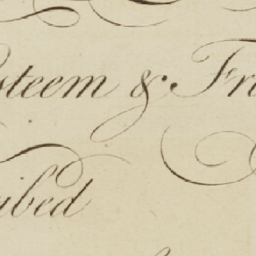 steem & Fr
ibed